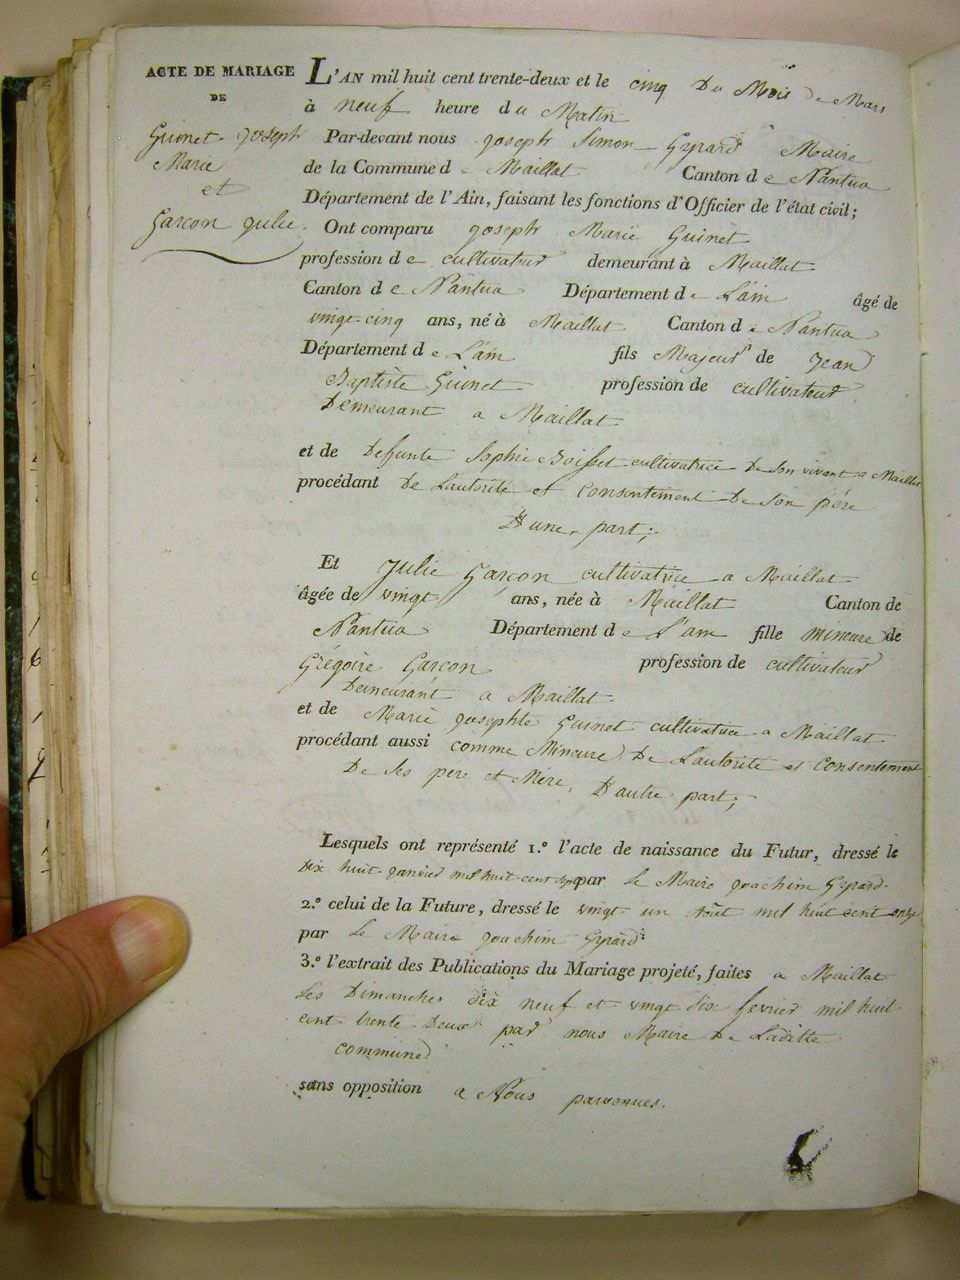 ACTE DE MARIAGE
DE
Guinet Joseph
Marie
et
Garcon Julie.
L'AN mil huit cent trente-deux et le cinq Du Mois de Mars
à neuf heure du Matin
Par-devant nous Joseph Simon Gyrard Maire
de la Commune de Maillat Canton de Nantua
Département de l'Ain, faisant les fonctions d'Officier de l'état civil;
Ont comparu Joseph Marie Guinet
profession de cultivateur demeurant à Maillat
Canton de Nantua Département de L'ain âgé de
vingt-cinq ans, né à Maillat Canton de Nantua
Département de L'ain fils Majeur de Jean
Baptiste Guinet profession de cultivateur
Demeurant a Maillat
et de Defunte Sophie Boisset cultivatrice De son vivant a Maillat
procédant De Lautorité et consentement De son père
D'une part;
Et Julie Garçon cultivatrice a Maillat
âgée de vingt ans, née à Maillat Canton de
Nantua Département de L'ain fille mineure de
Grégoire Garcon profession de cultivateur
Demeurant a Maillat
et de Marie Josephte Guinet cultivatrice a Maillat
procédant aussi comme Mineure De Lautorité et consentement
De ses pere et Mère, D'autre part;
Lesquels ont représenté 1.º l'acte de naissance du Futur, dressé le
Dix huit Janvier mil huit cent sept par le Maire Joachim Gyrard.
2.º celui de la Future, dressé le vingt un aout mil huit cent onze
par le Maire Joachim Gyrard
3.º l'extrait des Publications du Mariage projeté, faites a Maillat
Les Dimanches dix neuf et vingt six fevrier mil huit
cent trente Deux par nous Maire De Laditte
commune
sans opposition a Nous parvenues.